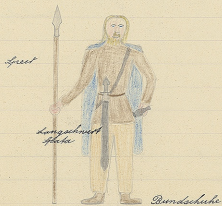 Speer
Langschwert
Spata
Bundschuhe